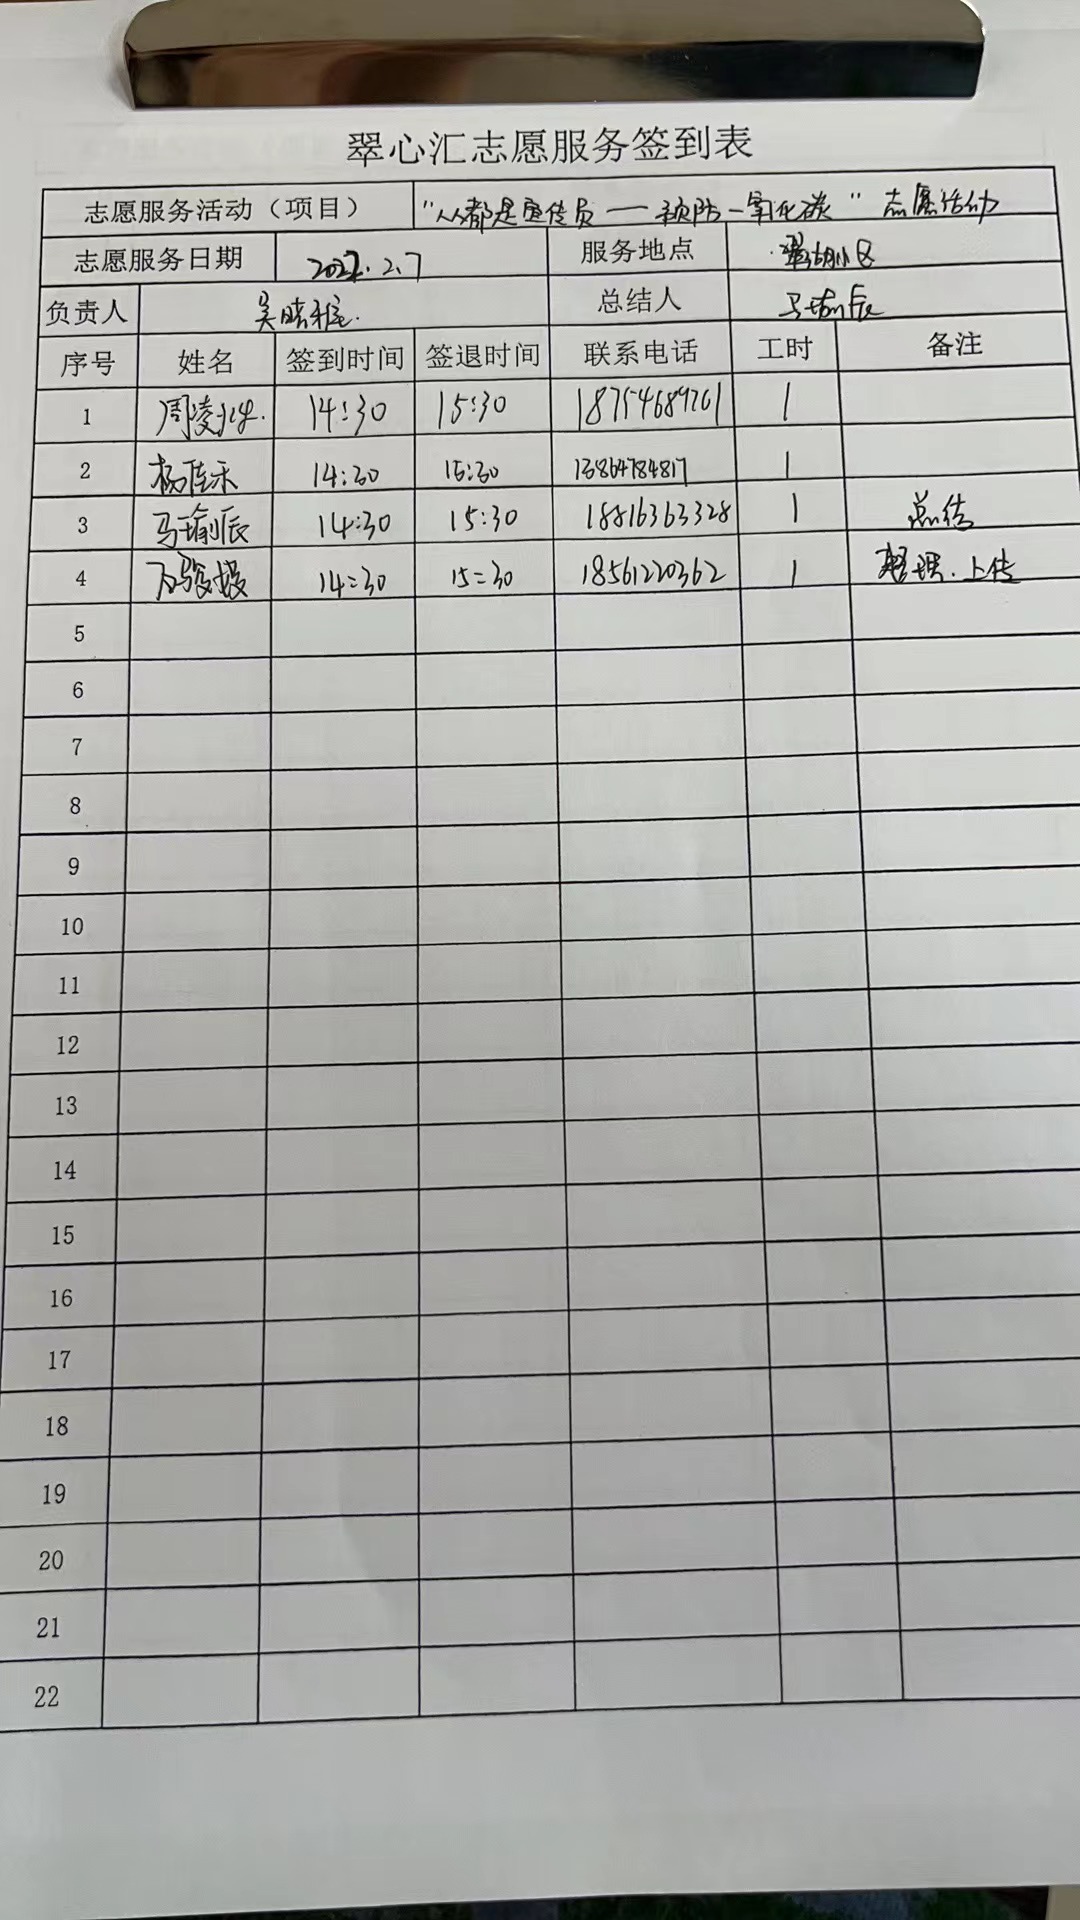 翠心汇志愿服务签到表
志愿服务活动（项目） “人人都是宣传员——预防一氧化碳”志愿活动
志愿服务日期 2022.2.7 服务地点 翠湖小区
负责人 吴晓 总结人 马瑜辰
序号 姓名 签到时间 签退时间 联系电话 工时 备注
1 周凌 14:30 15:30 18754689261 1
2 杨佳禾 14:30 15:30 13864784817 1
3 马瑜辰 14:30 15:30 18816363328 1 总结
4 14:30 15:30 18561220362 1 整理.上传
5
6
7
8
9
10
11
12
13
14
15
16
17
18
19
20
21
22